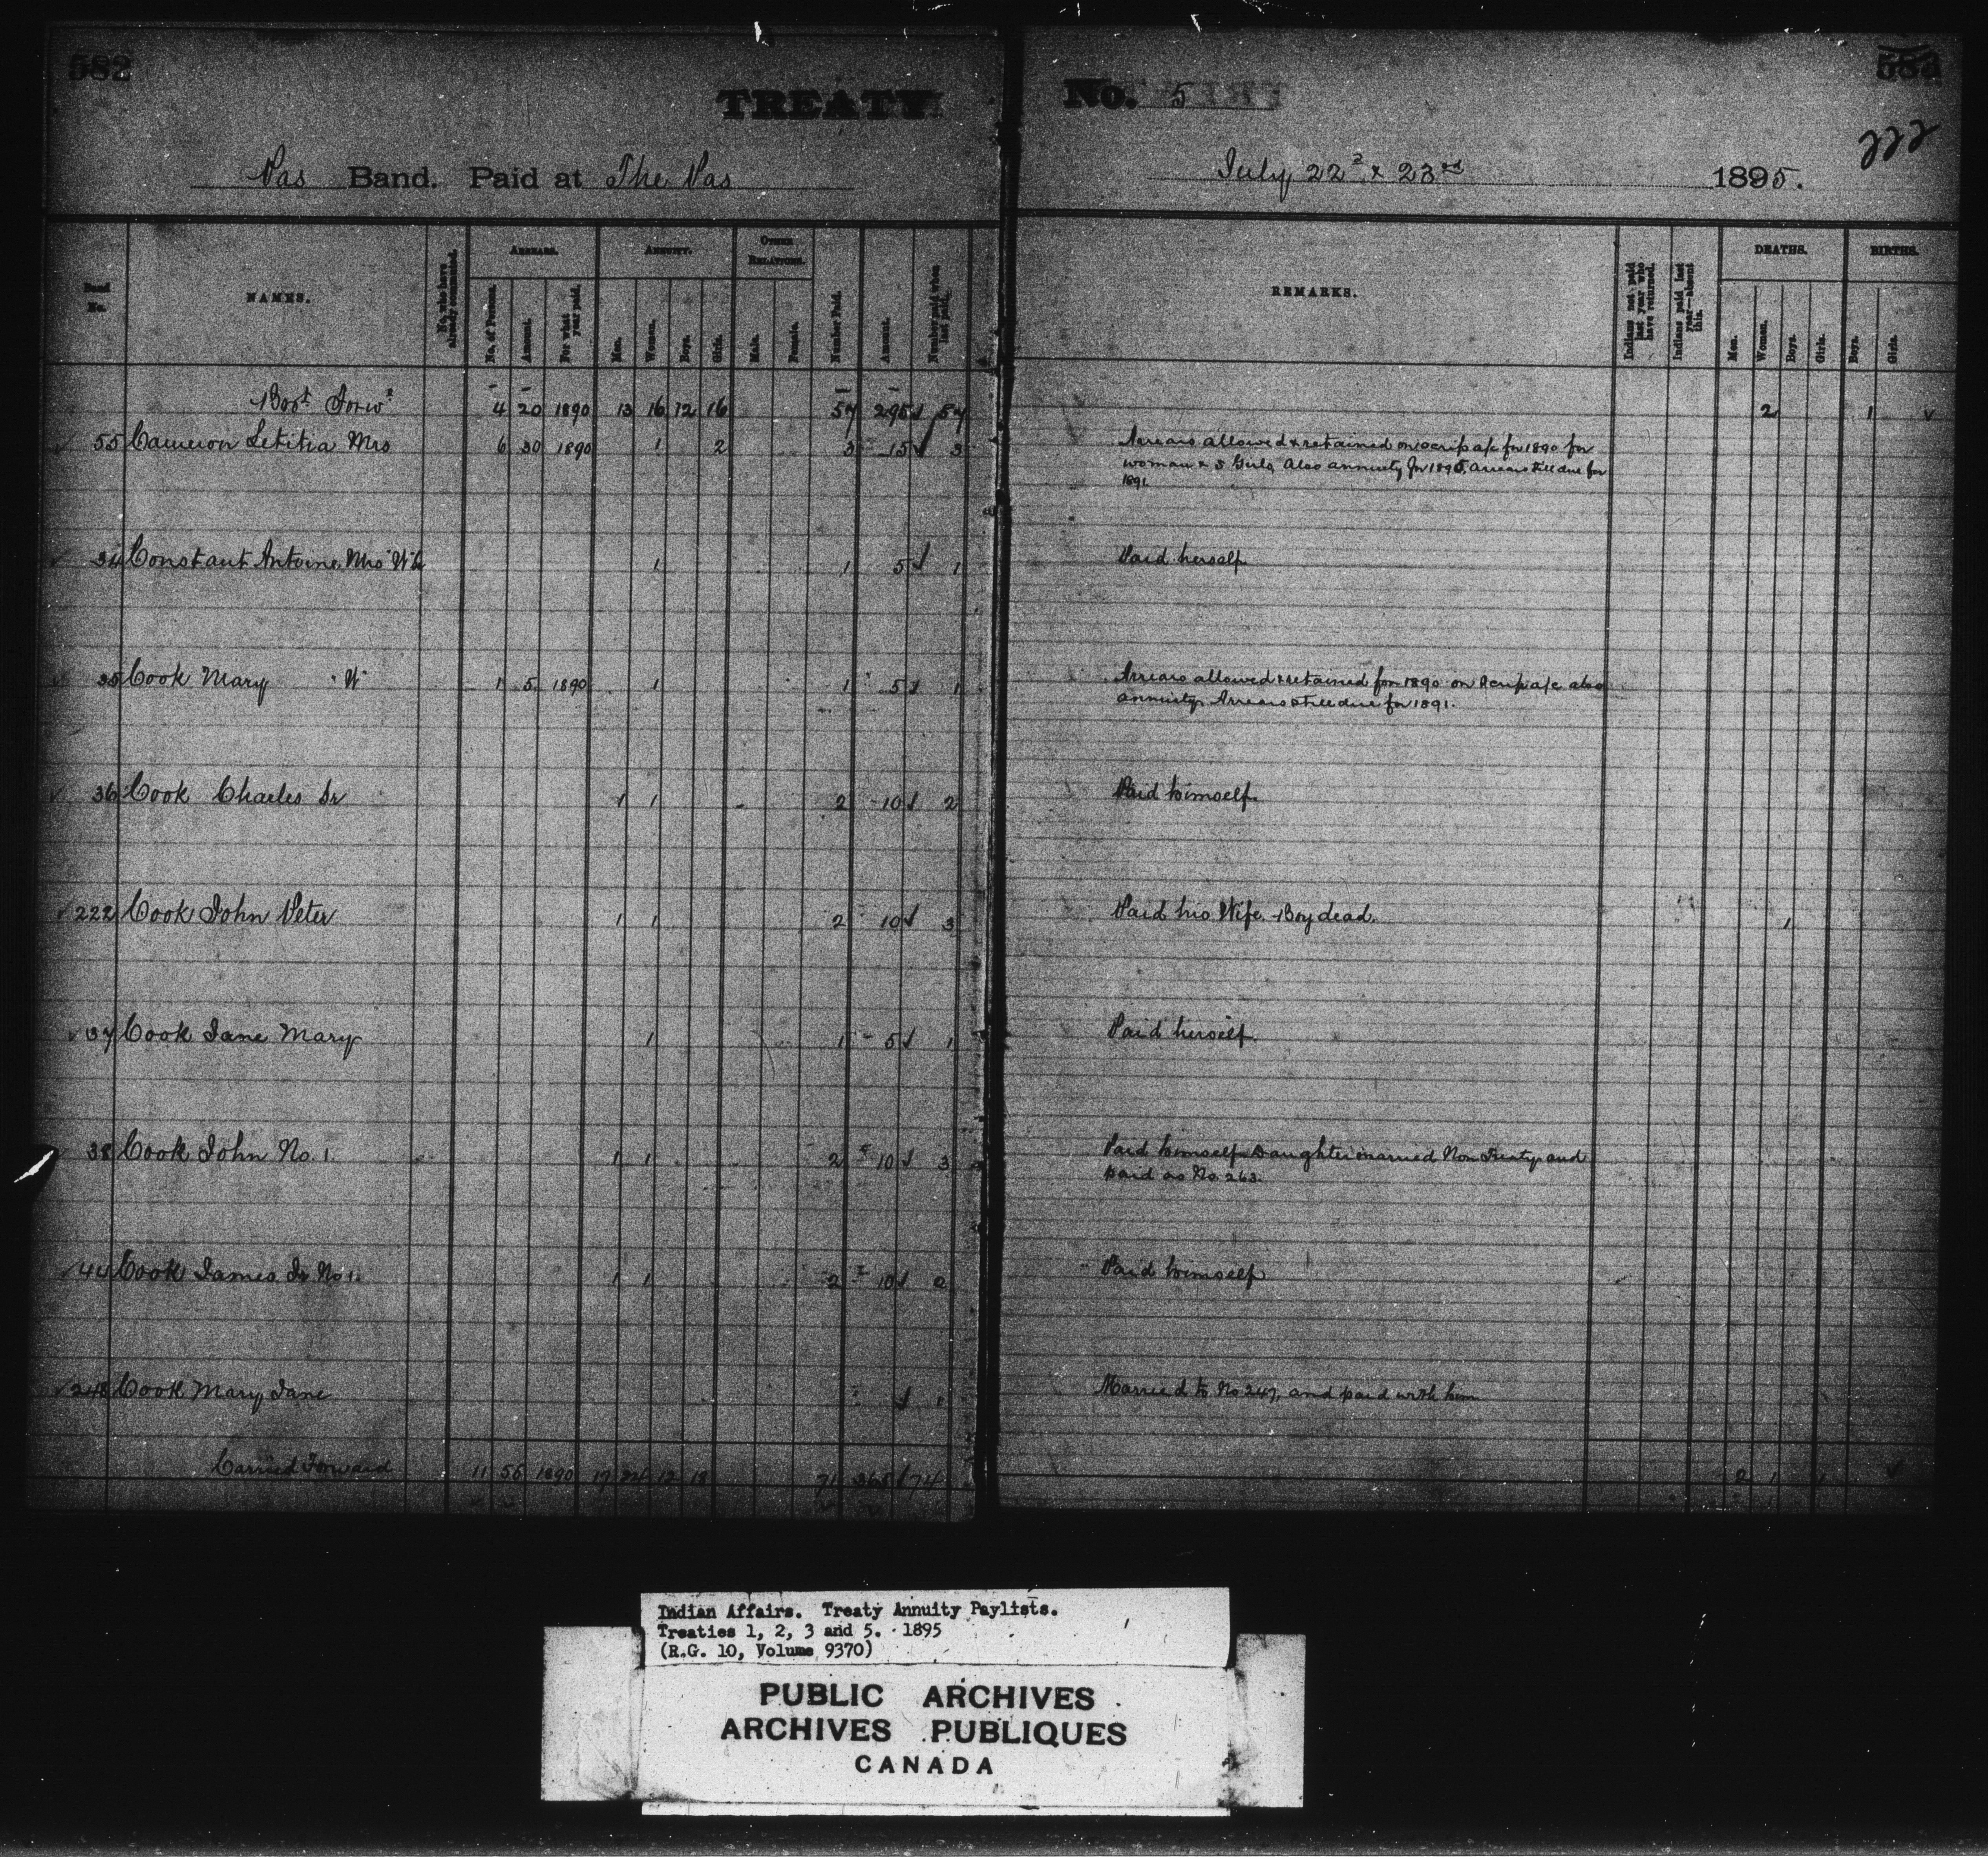 582
TREATY No. 5
222
Pas Band. Paid at The Pas July 22d & 23rd 1895.
Band No. NAMES. No. who have already commuted. ARREARS. ANNUITY. OTHER RELATIONS. Number Paid. Amount. Number paid when last paid. REMARKS. Indians not paid last year who have returned. Indians paid last year—absent this. DEATHS. BIRTHS.
No. of Persons. Amount. For what year paid. Men. Women. Boys. Girls. Male. Female. Men. Women. Boys. Girls. Boys. Girls.
Brot Forwd 4 20 1890 13 16 12 16 57 295 57 2 1
55 Cameron Letitia Mrs 6 30 1890 1 2 3 15 3 Arrears allowed & retained on scrip a/c for 1890 for
woman & 5 Girls, Also annuity for 1895. Arrears still due for
1891.
34 Constant Antoine Mrs 1 1 5 1 Paid herself
35 Cook Mary W 1 5 1890 1 1 5 1 Arrears allowed & retained for 1890 on scrip a/c also
annuity. Arrears still due for 1891.
36 Cook Charles Sr 1 1 2 10 2 Paid himself.
222 Cook John Peter 1 1 2 10 3 Paid his Wife. Boy dead. 1
37 Cook Jane Mary 1 1 5 1 Paid herself.
38 Cook John No. 1. 1 1 2 10 3 Paid himself. Daughter married Non Treaty and
paid as No. 263.
44 Cook James Jr No 1. 1 1 2 10 2 Paid himself
248 Cook Mary Jane 1 Married to No 247, and paid with him
Carried Forward 11 55 1890 17 24 12 18 71 365 74 2 1 1
Indian Affairs. Treaty Annuity Paylists.
Treaties 1, 2, 3 and 5. 1895
(R.G. 10, Volume 9370)
PUBLIC ARCHIVES
ARCHIVES PUBLIQUES
CANADA